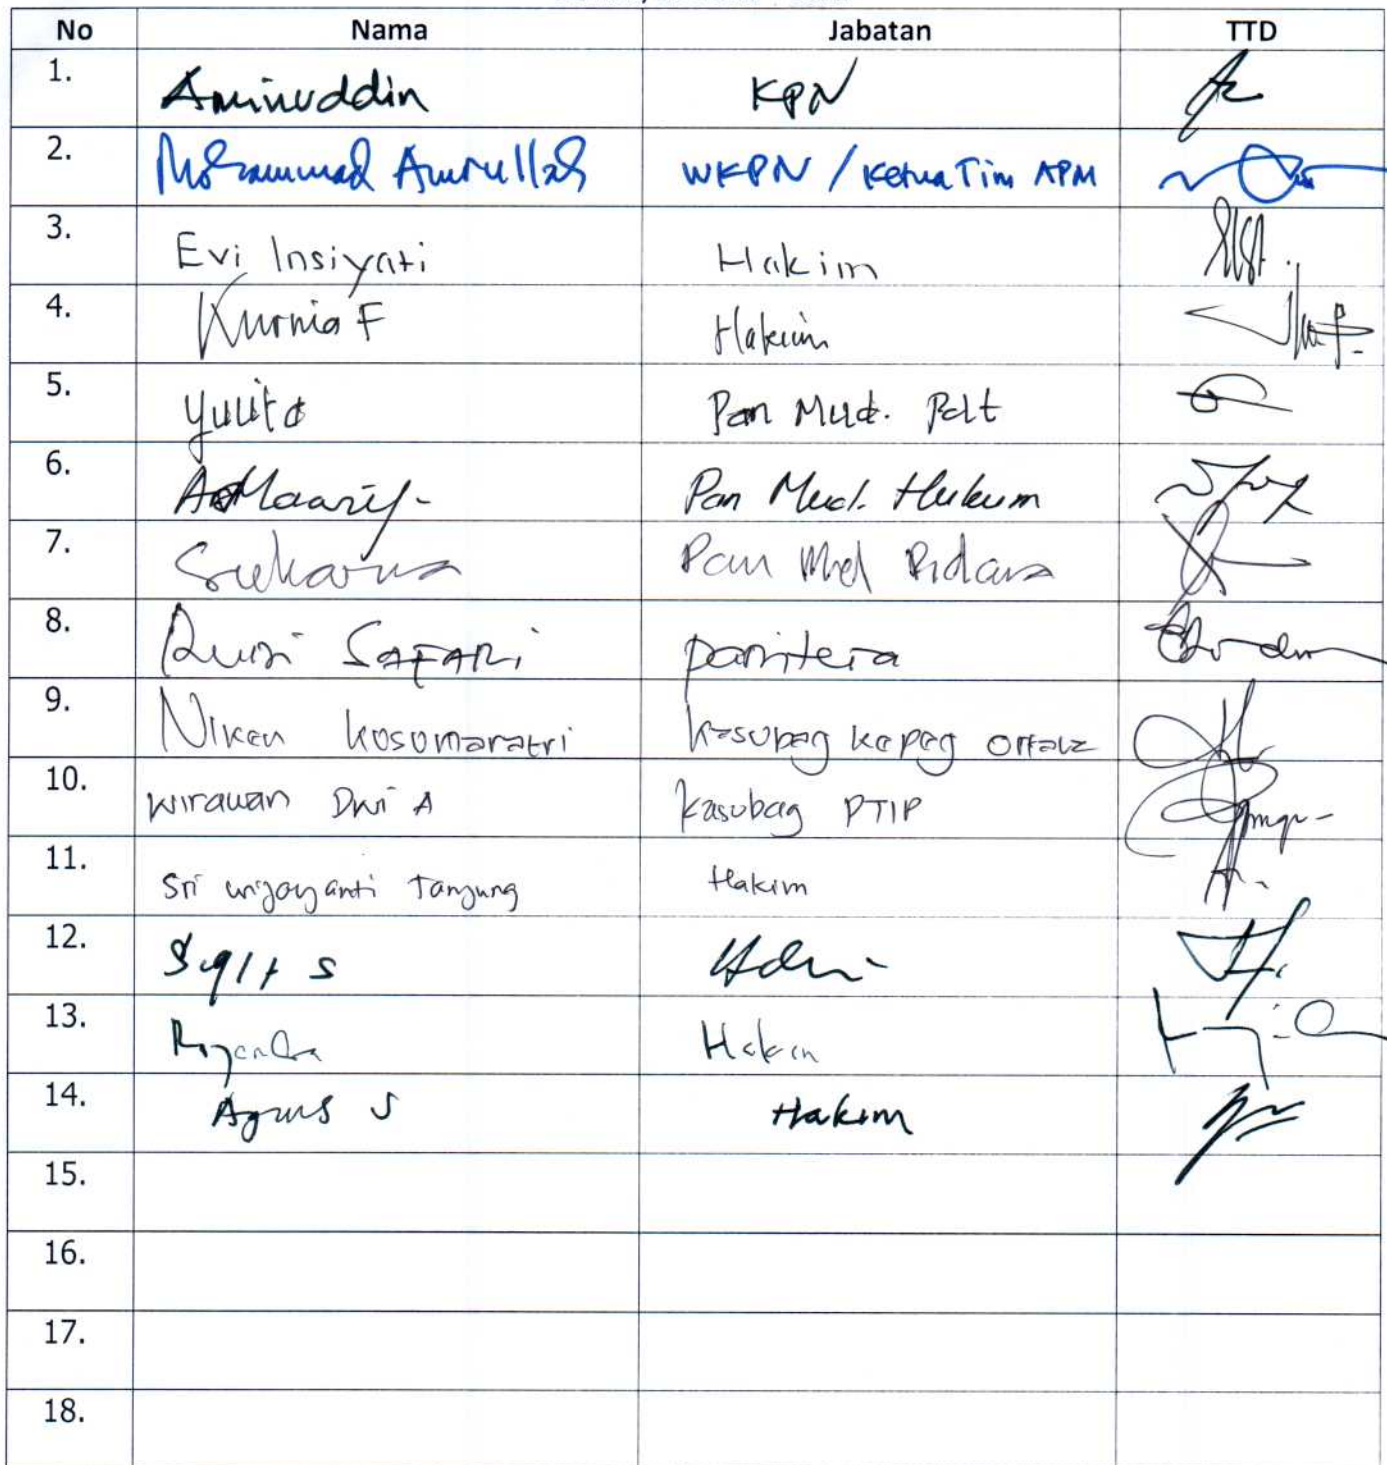 No Nama Jabatan TTD
1. Aminuddin KPN
2. Mohammad Amrullah WKPN / Ketua Tim APM
3. Evi Insiyati Hakim
4. Kurnia F Hakim
5. Yulita Pan Mud. Pdt
6. Pan Mud. Hukum
7. Pan Mud Pidana
8. Rusdi SAFARi panitera
9. Niken kosomaratri kasubag kepeg ortala
10. wirawan Dwi A kasubag PTIP
11. Sri wijayanti Tanjung Hakim
12. Sigit S
13. Hakim
14. Agus S Hakim
15.
16.
17.
18.